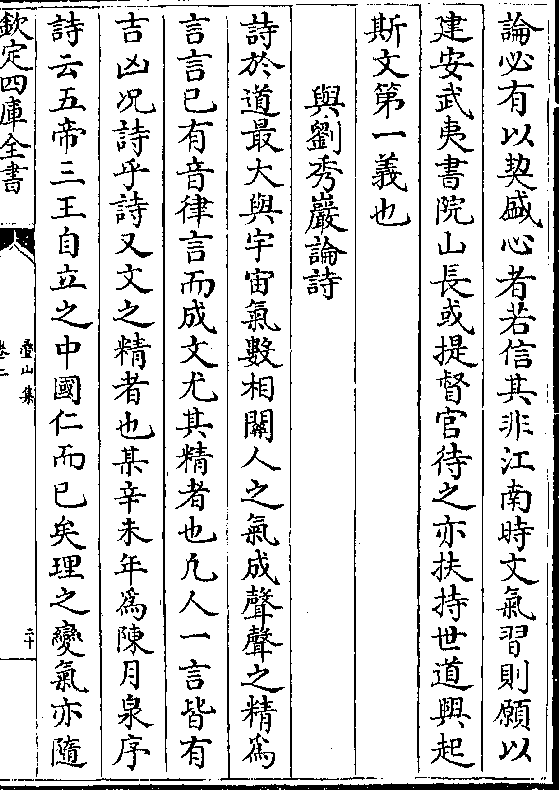 論必有以契盛心者若信其非江南時文氣習則願以
建安武夷書院山長或提督官待之亦扶持世道興起
斯文第一義也
與劉秀巖論詩
詩於道最大與宇宙氣數相關人之氣成聲聲之精為
言言已有音律言而成文尤其精者也凡人一言皆有
吉凶况詩乎詩又文之精者也某辛未年為陳月泉序
詩云五帝三王自立之中國仁而已矣理之變氣亦隨
欽定四庫全書
疊山集
卷二
二十